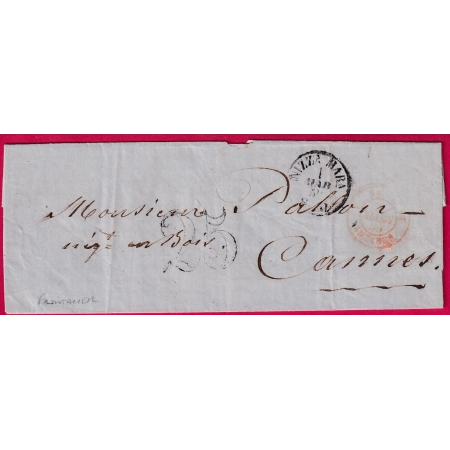 NIZZA MARA
1
MAR
Monsieur Pallon
nég.t en Bois
25
Cannes.
FRONTALIER